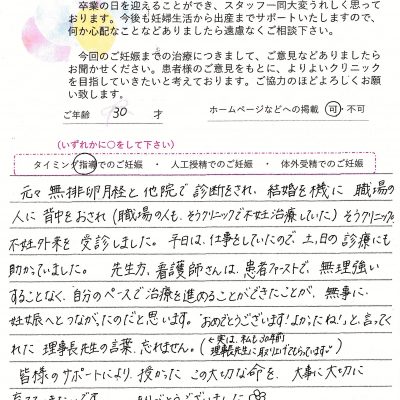 卒業の日を迎えることができ、スタッフ一同大変うれしく思って
おります。今後も妊婦生活から出産までサポートいたしますので、
何か心配なことなどありましたら遠慮なくご相談下さい。
今回のご妊娠までの治療につきまして、ご意見などありましたら
お聞かせください。患者様のご意見をもとに、よりよいクリニック
を目指していきたいと考えております。ご協力のほどよろしくお願
い致します。
ご年齢 30 才 ホームページなどへの掲載 可・不可
(いずれかに○をして下さい)
タイミング指導でのご妊娠 ・ 人工授精でのご妊娠 ・ 体外受精でのご妊娠
元々無排卵月経と他院で診断をされ、結婚を機に職場の
人に背中をおされ(職場の人も、そうクリニックで不妊治療していた)そうクリニックの
不妊外来を受診しました。平日は、仕事をしていたので、土、日の診療にも
助かっていました。先生方、看護師さんは、患者ファーストで、無理強い
することなく、自分のペースで治療を進めることができたことが、無事に
妊娠へとつながったのだと思います。"おめでとうございます!よかったね!"と、言ってく
れた理事長先生の言葉、忘れません。(←実は、私も30年前
理事長先生に取り上げてもらっています)
皆様のサポートにより、授かったこの大切な命を、大事に大切に